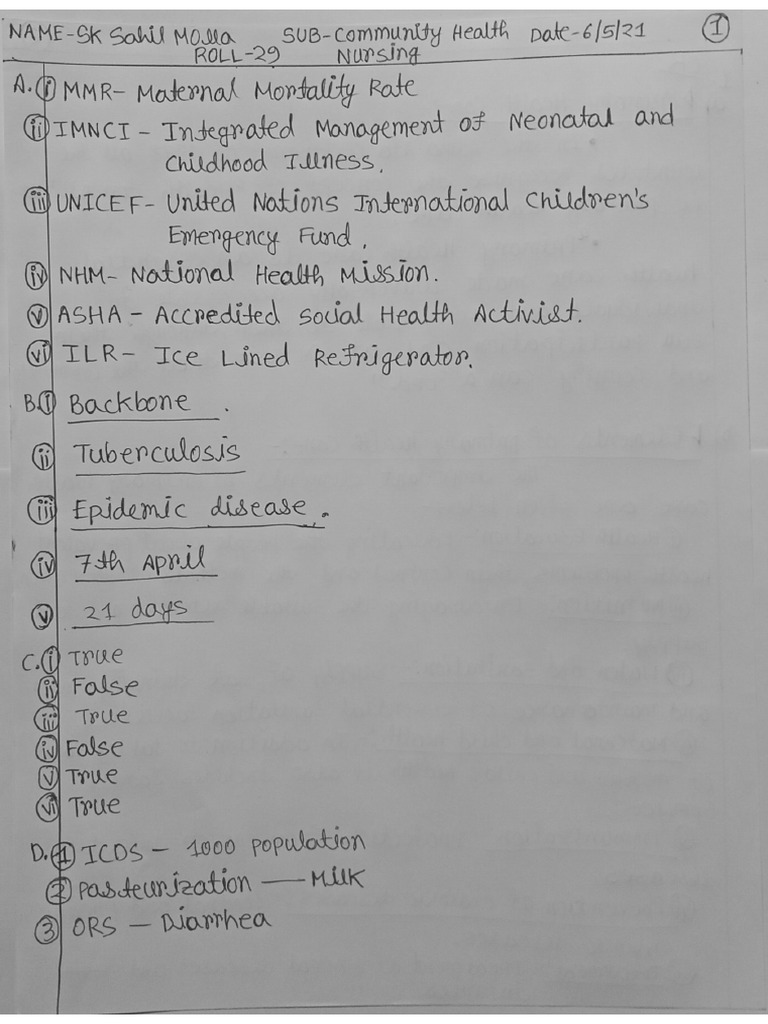 NAME-SK Sahil Molla SUB-Community Health Date-6/5/21 ①
ROLL-29 Nursing
A. ⓘ MMR- Maternal Mortality Rate
ⅱ IMNCI - Integrated Management of Neonatal and
Childhood Illness.
ⅲ UNICEF- United Nations International Children's
Emergency Fund.
ⅳ NHM- National Health Mission.
ⅴ ASHA - Accredited Social Health Activist.
ⅵ ILR- Ice Lined Refrigerator.
B. ⓘ Backbone.
ⅱ Tuberculosis
ⅲ Epidemic disease.
ⅳ 7th April
ⅴ 21 days
C. ⓘ True
ⅱ False
ⅲ True
ⅳ False
ⅴ True
ⅵ True
D. ① ICDS - 1000 population
② Pasteurization — Milk
③ ORS - Diarrhea